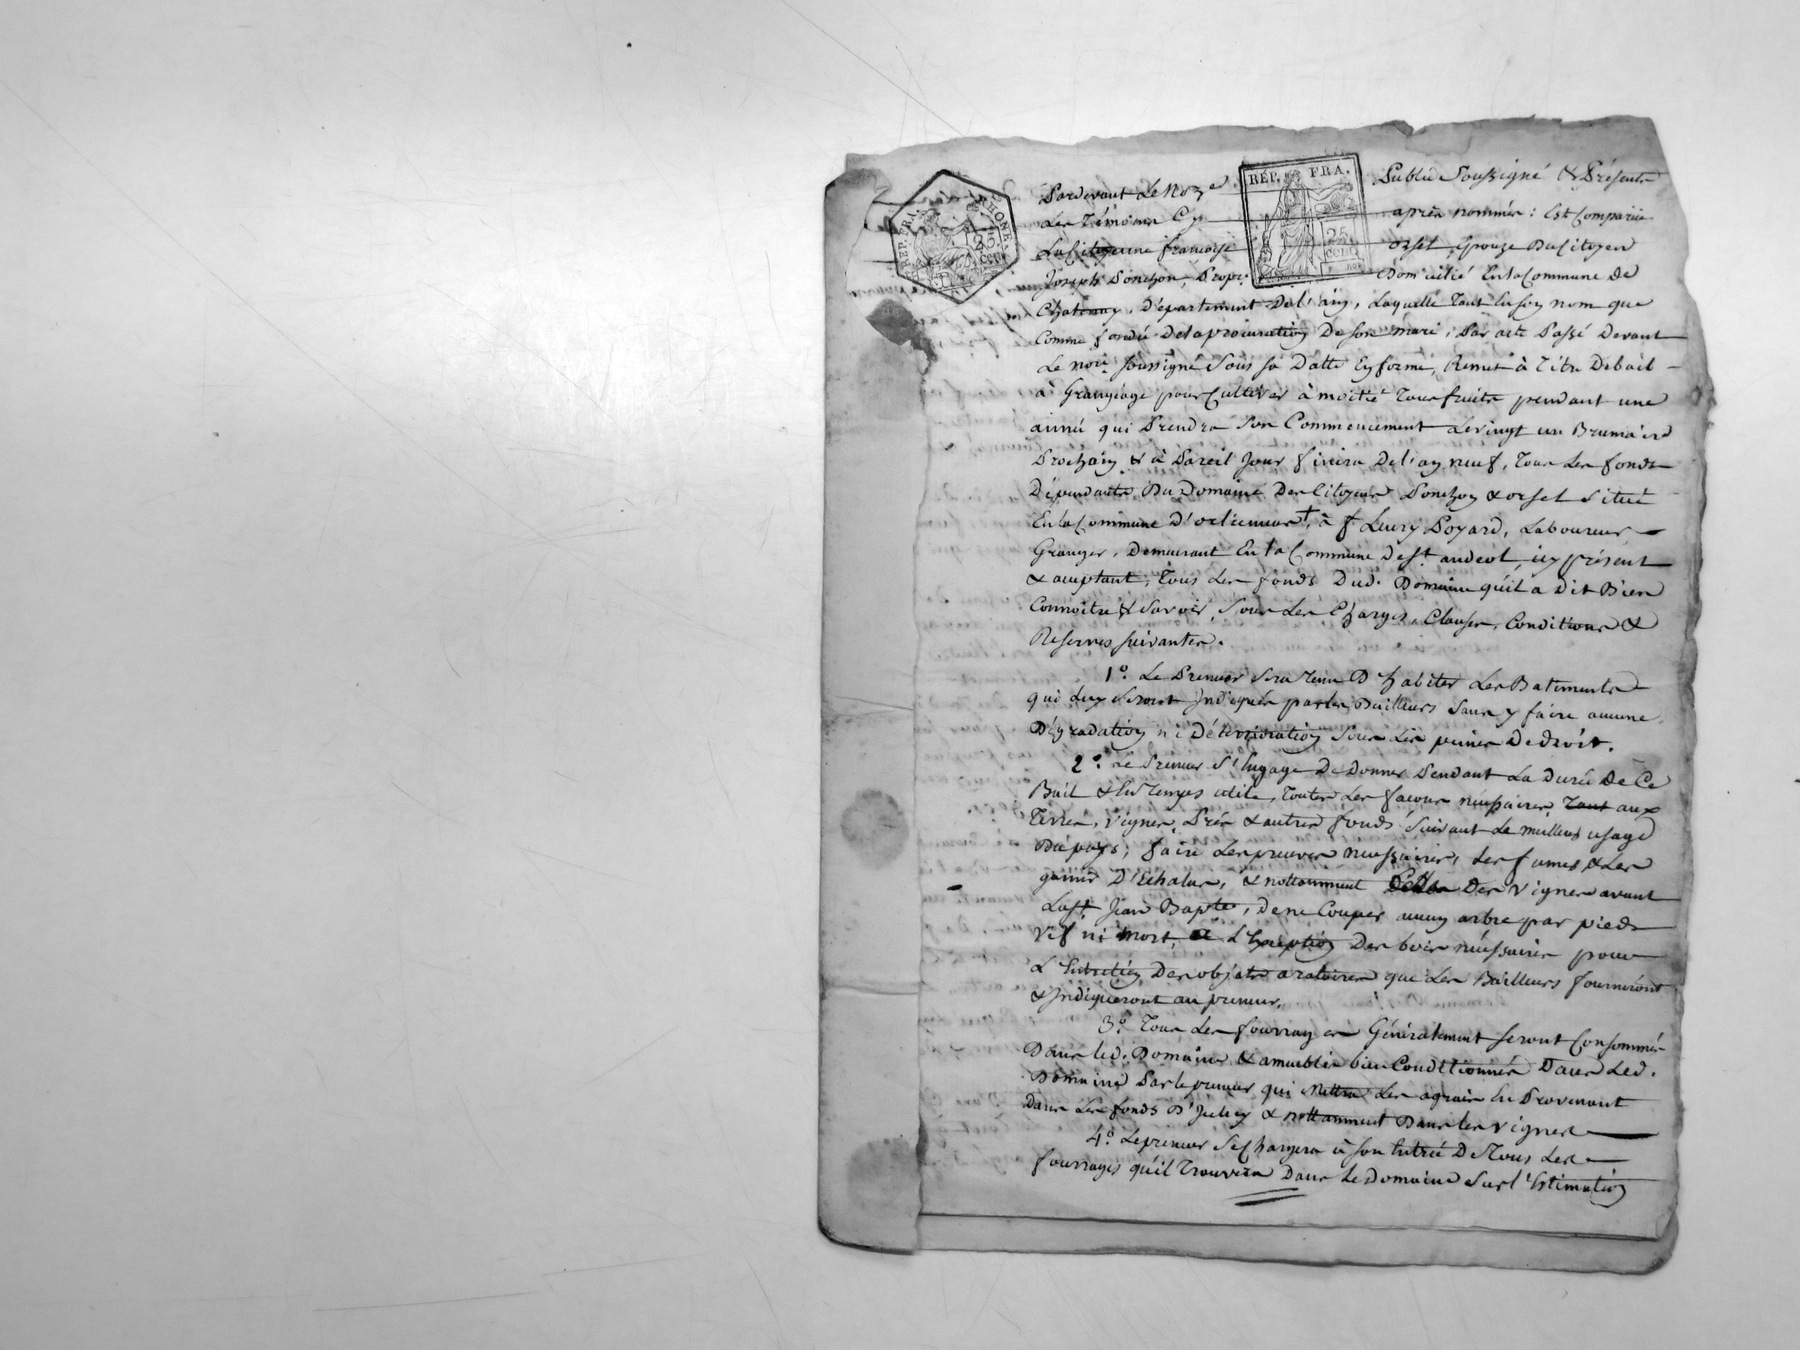 REP. FRA. RHONE. 25 CENT.
REP. FRA. 25 CENT.
Pardevant Le Nore Public Soussigné & Présents
Les Témoins Cy après nommés : Est Comparüe
La Citoyenne françoise orsel, épouze Du Citoyen
Joseph Ponchon, Propre Domicilié En la Commune de
Châtenay, Département De l'ain, Laquelle Tant En son nom que
Comme fondée De la procuration De son mari, Par acte Passé Devant
Le nore soussigné Sous sa Datte En forme, Remet à Titre De bail
à Grangeage pour Cultiver à moitié Tous fruits pendant une
année qui Prendra Son Commencement Le vingt un Brumaire
Prochain & à Pareil Jour finira De l'an neuf, Tous Les fonds
Dépendants Du Domaine Des Citoyens Ponchon & orsel Situé
En la Commune D' †, à f. Poyard, Laboureur
Granger, Demeurant En la Commune De st. andeol, icy présent
& acceptant, Tous Les fonds Dud. Domaine qu'il a Dit Bien
Connoitre & Savoir, Sous Les Charges, Clauses, Conditions &
Reserves suivantes.
1°. Le Preneur Sera Tenu D'habiter Les Batiments
qui Luy Seront Indiqués par les Bailleurs Sans y faire aucune
Dégradation ni Déterrioration Sous Les peines De droit.
2°. Le Preneur S'Engage De Donner Pendant La Durée De Ce
Bail & En Temps utile, Toutes Les façons nécéssaires Tant aux
Terres, Vignes, Prés & autres fonds Suivant Le meilleur usage
Du pays ; faire Les preuves nécéssaires, Les fumer & Les
garnir D'Echalas, & nottamment Celles Des Vignes avant
La st. Jean Bapte, De ne Couper aucun arbre par pied
Vif ni mort, a L'Exception Des bois nécéssaires pour
L'Entretien Des objets aratoires que Les Bailleurs fourniront
& Indiqueront au preneur.
3°. Tous Les fourrages Généralement Seront Consommés
Dans led. Domaine & ameublis bien Conditionnés Dans Led.
Domaine Par le preneur qui Mettra Les agrais En Provenant
Dans Les fonds D'Iceluy & nottamment Dans les vignes
4°. Le preneur Se Chargera à son Entrée De Tous Les
fourrages qu'il Trouvera Dans Le Domaine Sur l'Estimation